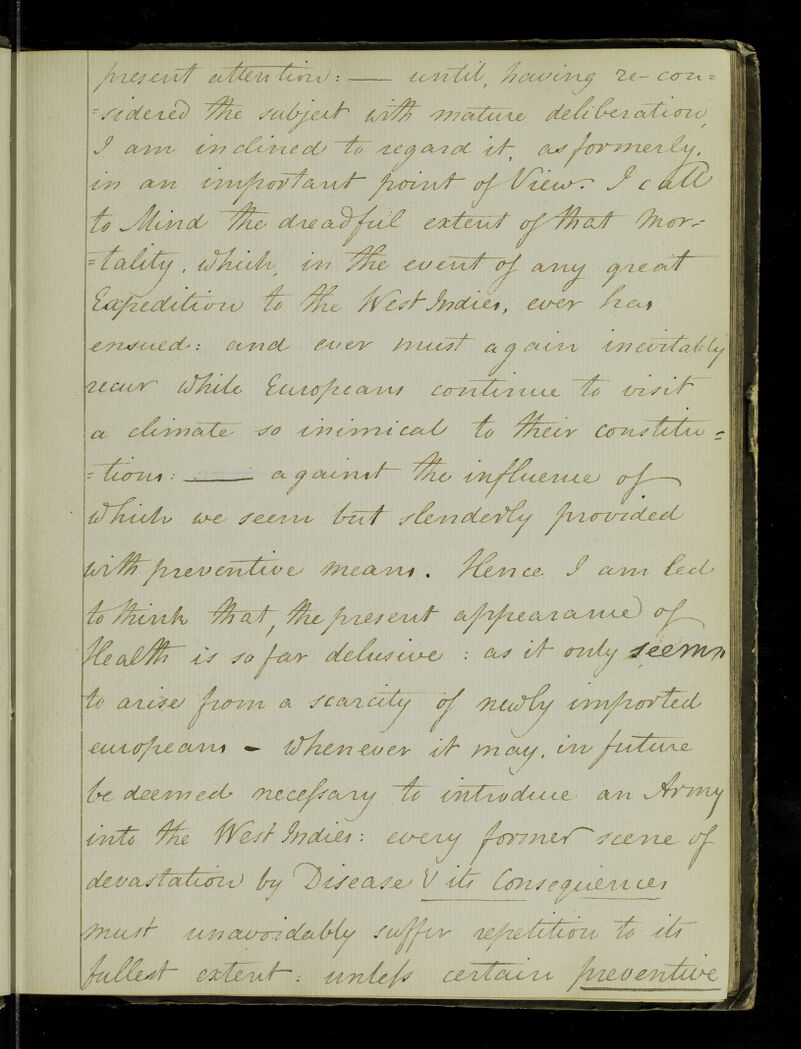 present attention: — until, having re-con=
=sidered the subject with mature deliberation,
I am inclined to regard it, as formerly,
in an important point of View. I call
to Mind the dreadful extent of that Mor=
=tality, which, in the event of any great
Expedition to the West Indies, ever has
ensued: and ever must again inevitably
recur while Europeans continue to visit
a climate so inimical to their constitu=
=tions: — against the influence of
which we seem but slenderly provided
with preventive means. Hence I am led
to think that, the present appearance of
Health is so far delusive: as it only seems
to arise from a scarcity of newly imported
europeans - Whenever it may, in future
be deemed neceſsary to introduce an Army
into the West Indies: every former scene of
devastation by Disease & its Consequences
must unavoidably suffer repetition to its
fullest extent: unleſs certain preventive